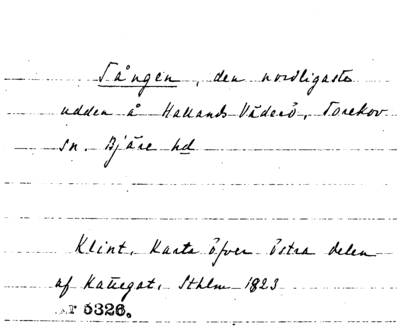 Tången, den nordligaste
udden å Hallands Väderö, Torekov
sn. Bjäre hd
Klint, Karta öfver östra delen
af Kattegat, Sthlm 1823
Nr 5326.